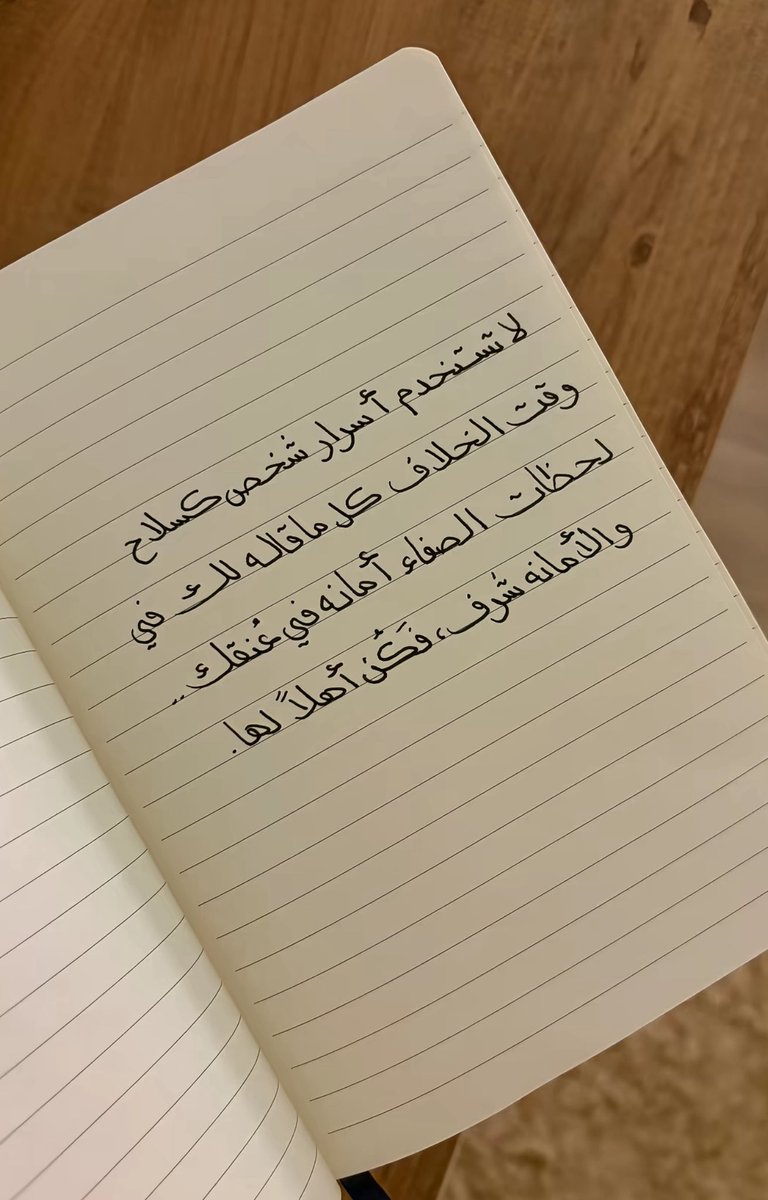 لا تستخدم أسرار شخص كسلاح
وقت الخلاف كل ما قاله لك في
لحظات الصفاء أمانه في عُنقك ..
والأمانه شرف، فَكُن أهلاً لها.